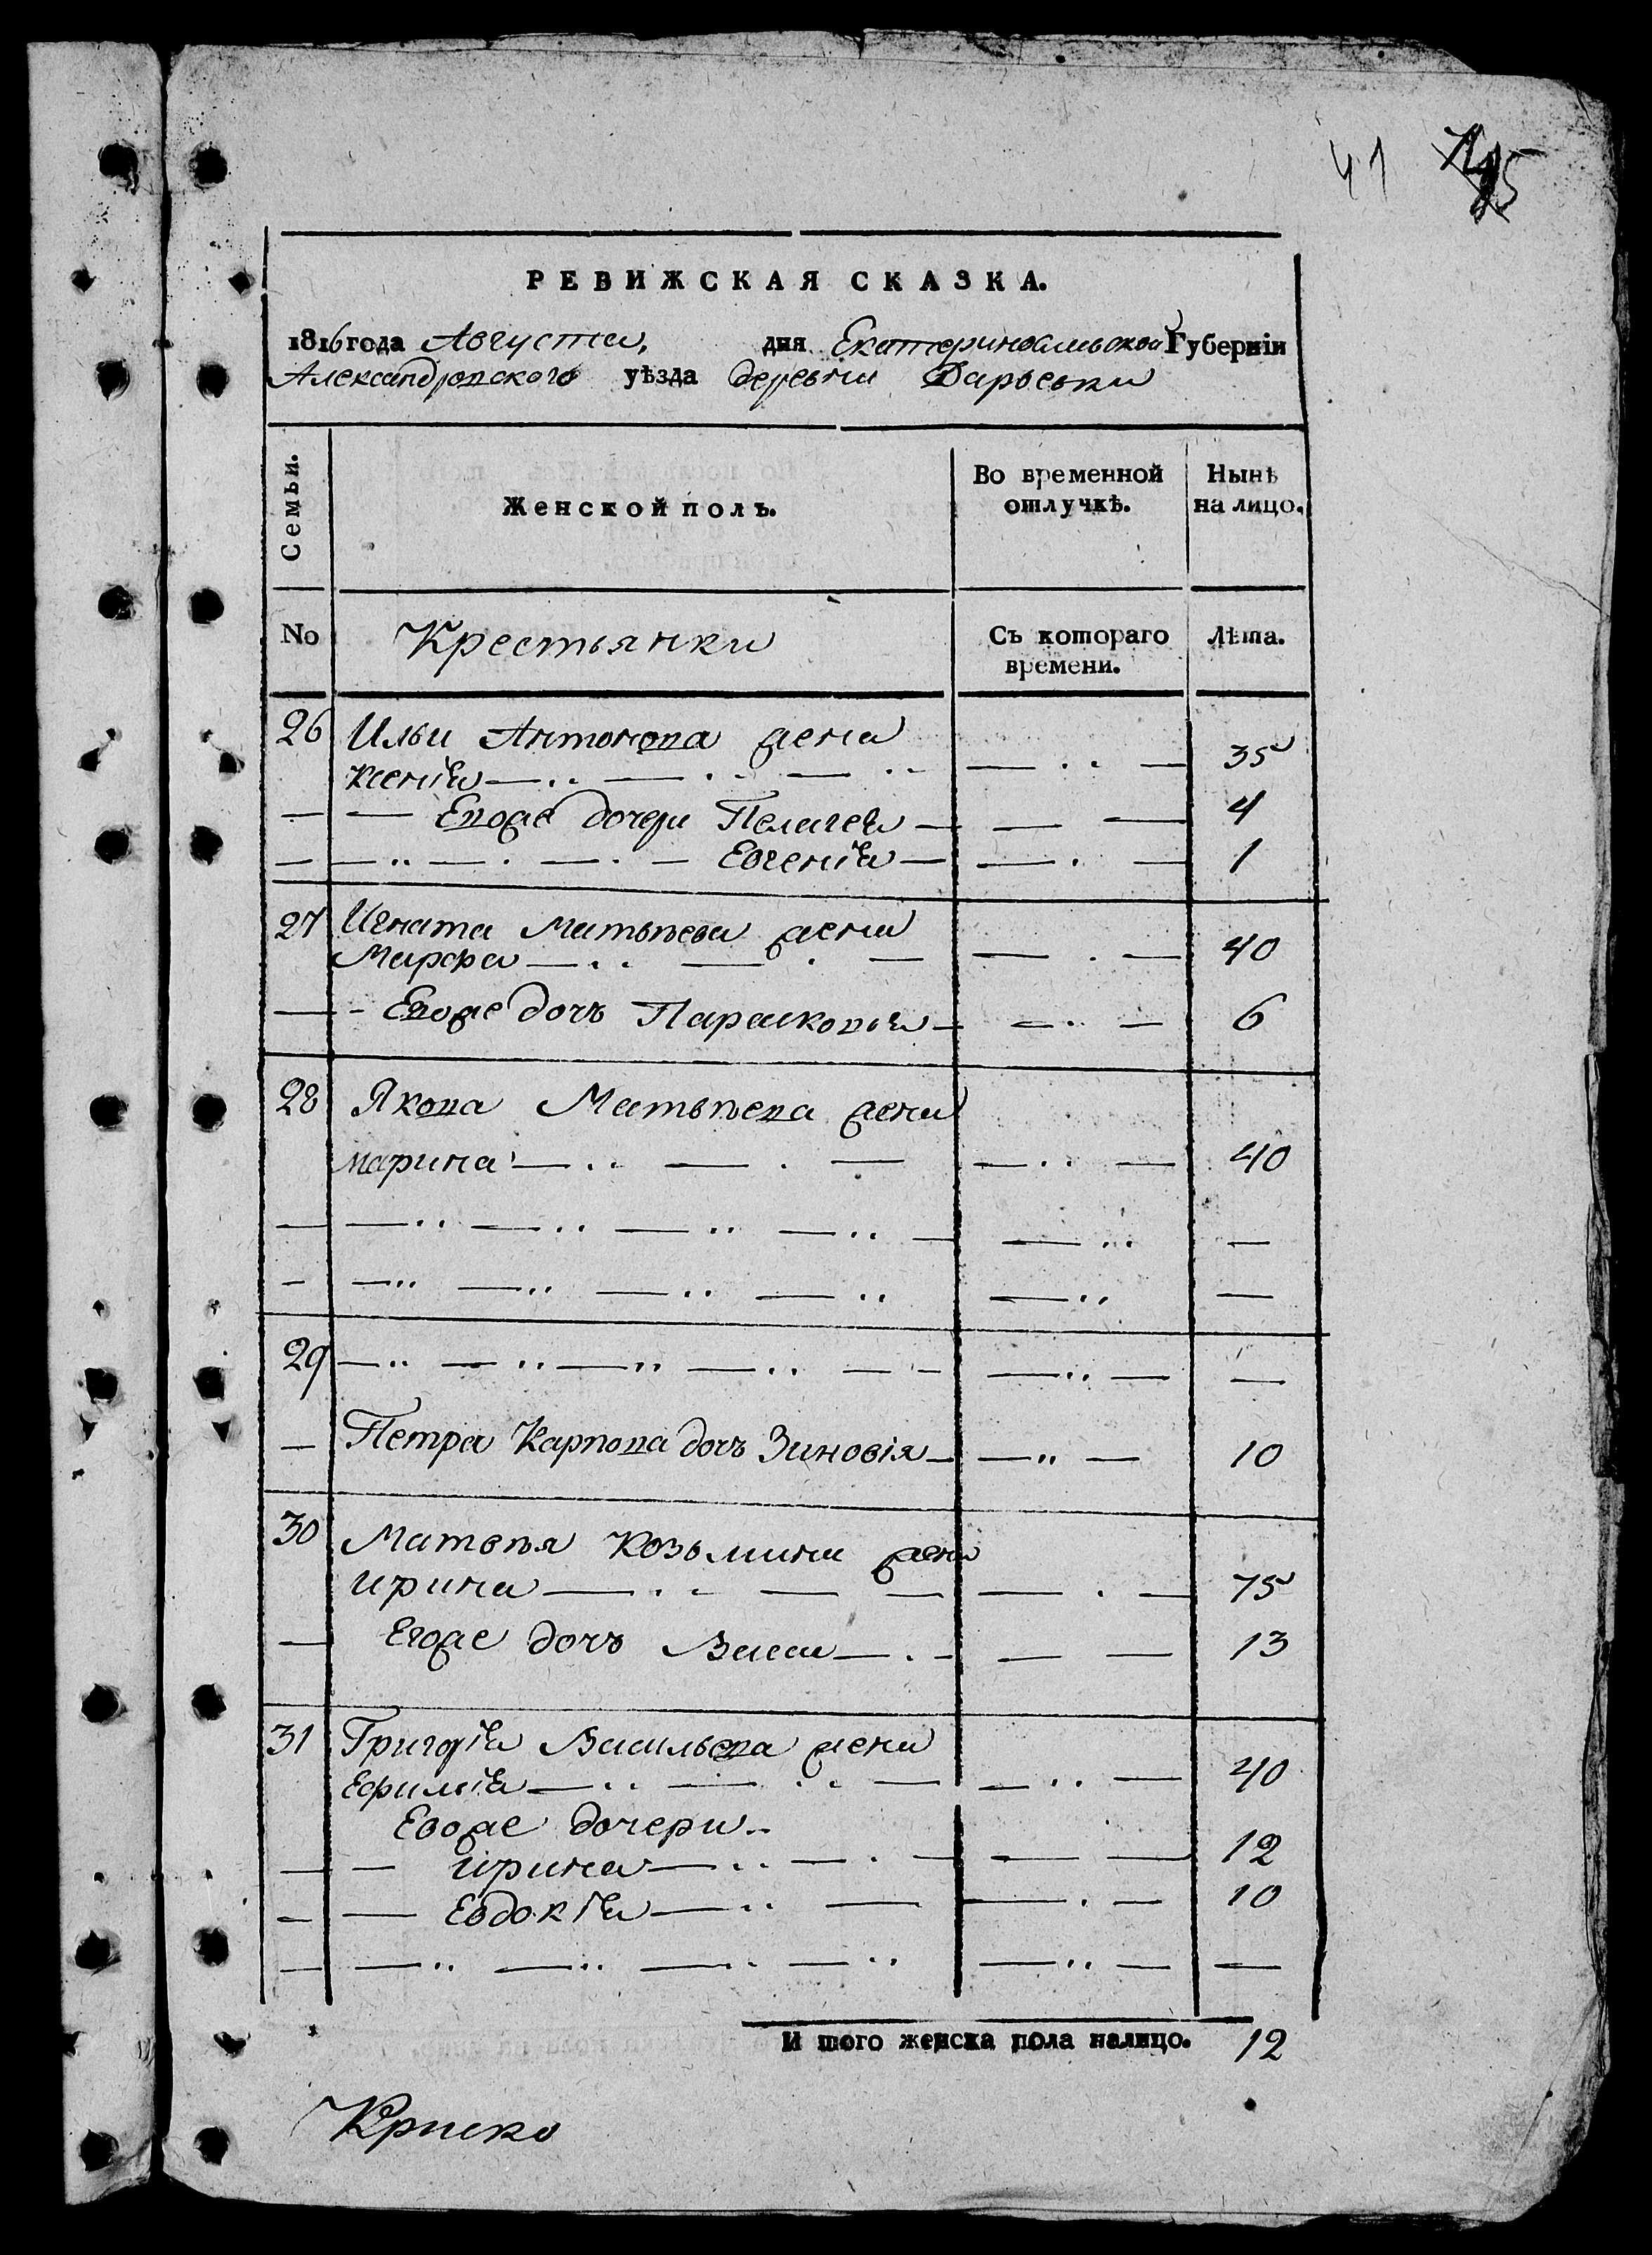 41
РЕВИЖСКАЯ СКАЗКА.
1816 года Августа, дня Екатеринославской Губерніи
Александровского уѣзда деревни Дарьевки
Семьи.
Женской полъ.
Во временной отлучкѣ.
Нынѣ на лицо.
No
Крестьянки
Съ котораго времени.
Лѣта.
26 Ильи Антонова жена
Ксенія 35
Евоже дочери Пелагея 4
Евгенія 1
27 Игната Матвѣева жена
Марфа 40
Евоже дочъ Парасковья 6
28 Якова Матвѣева жена
Марина 40
29
Петра Карпова дочъ Зиновія 10
30 Матвѣя Козьмина жена
Ирина 75
Егоже дочъ Васса 13
31 Григорія Васильева жена
Ефимія 40
Евоже дочери
Ирина 12
Евдокія 10
И того женска пола налицо. 12